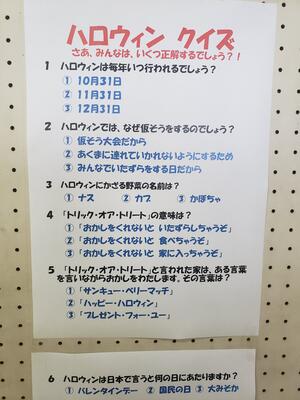 ハロウィン クイズ
さあ、みんなは、いくつ正解するでしょう？！
1 ハロウィンは毎年いつ行われるでしょう？
① 10月31日
② 11月31日
③ 12月31日
2 ハロウィンでは、なぜ仮そうをするのでしょう？
① 仮そう大会だから
② あくまに連れていかれないようにするため
③ みんなでいたずらをする日だから
3 ハロウィンにかざる野菜の名前は？
① ナス ② カブ ③ かぼちゃ
4 「トリック・オア・トリート」の意味は？
① 「おかしをくれないと いたずらしちゃうぞ」
② 「おかしをくれないと 食べちゃうぞ」
③ 「おかしをくれないと 家に入っちゃうぞ」
5 「トリック・オア・トリート」と言われた家は、ある言葉
を言いながらおかしをわたします。その言葉は？
① 「サンキュー・ベリーマッチ」
② 「ハッピー・ハロウィン」
③ 「プレゼント・フォー・ユー」
6 ハロウィンは日本で言うと何の日にあたりますか？
① バレンタインデー ② 国民の日 ③ 大みそか